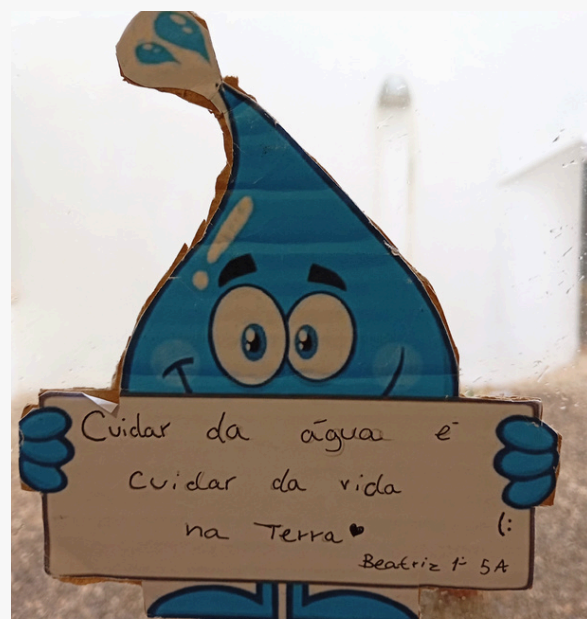 Cuidar da água é
Cuidar da vida
na Terra ♥
(:
Beatriz 5A